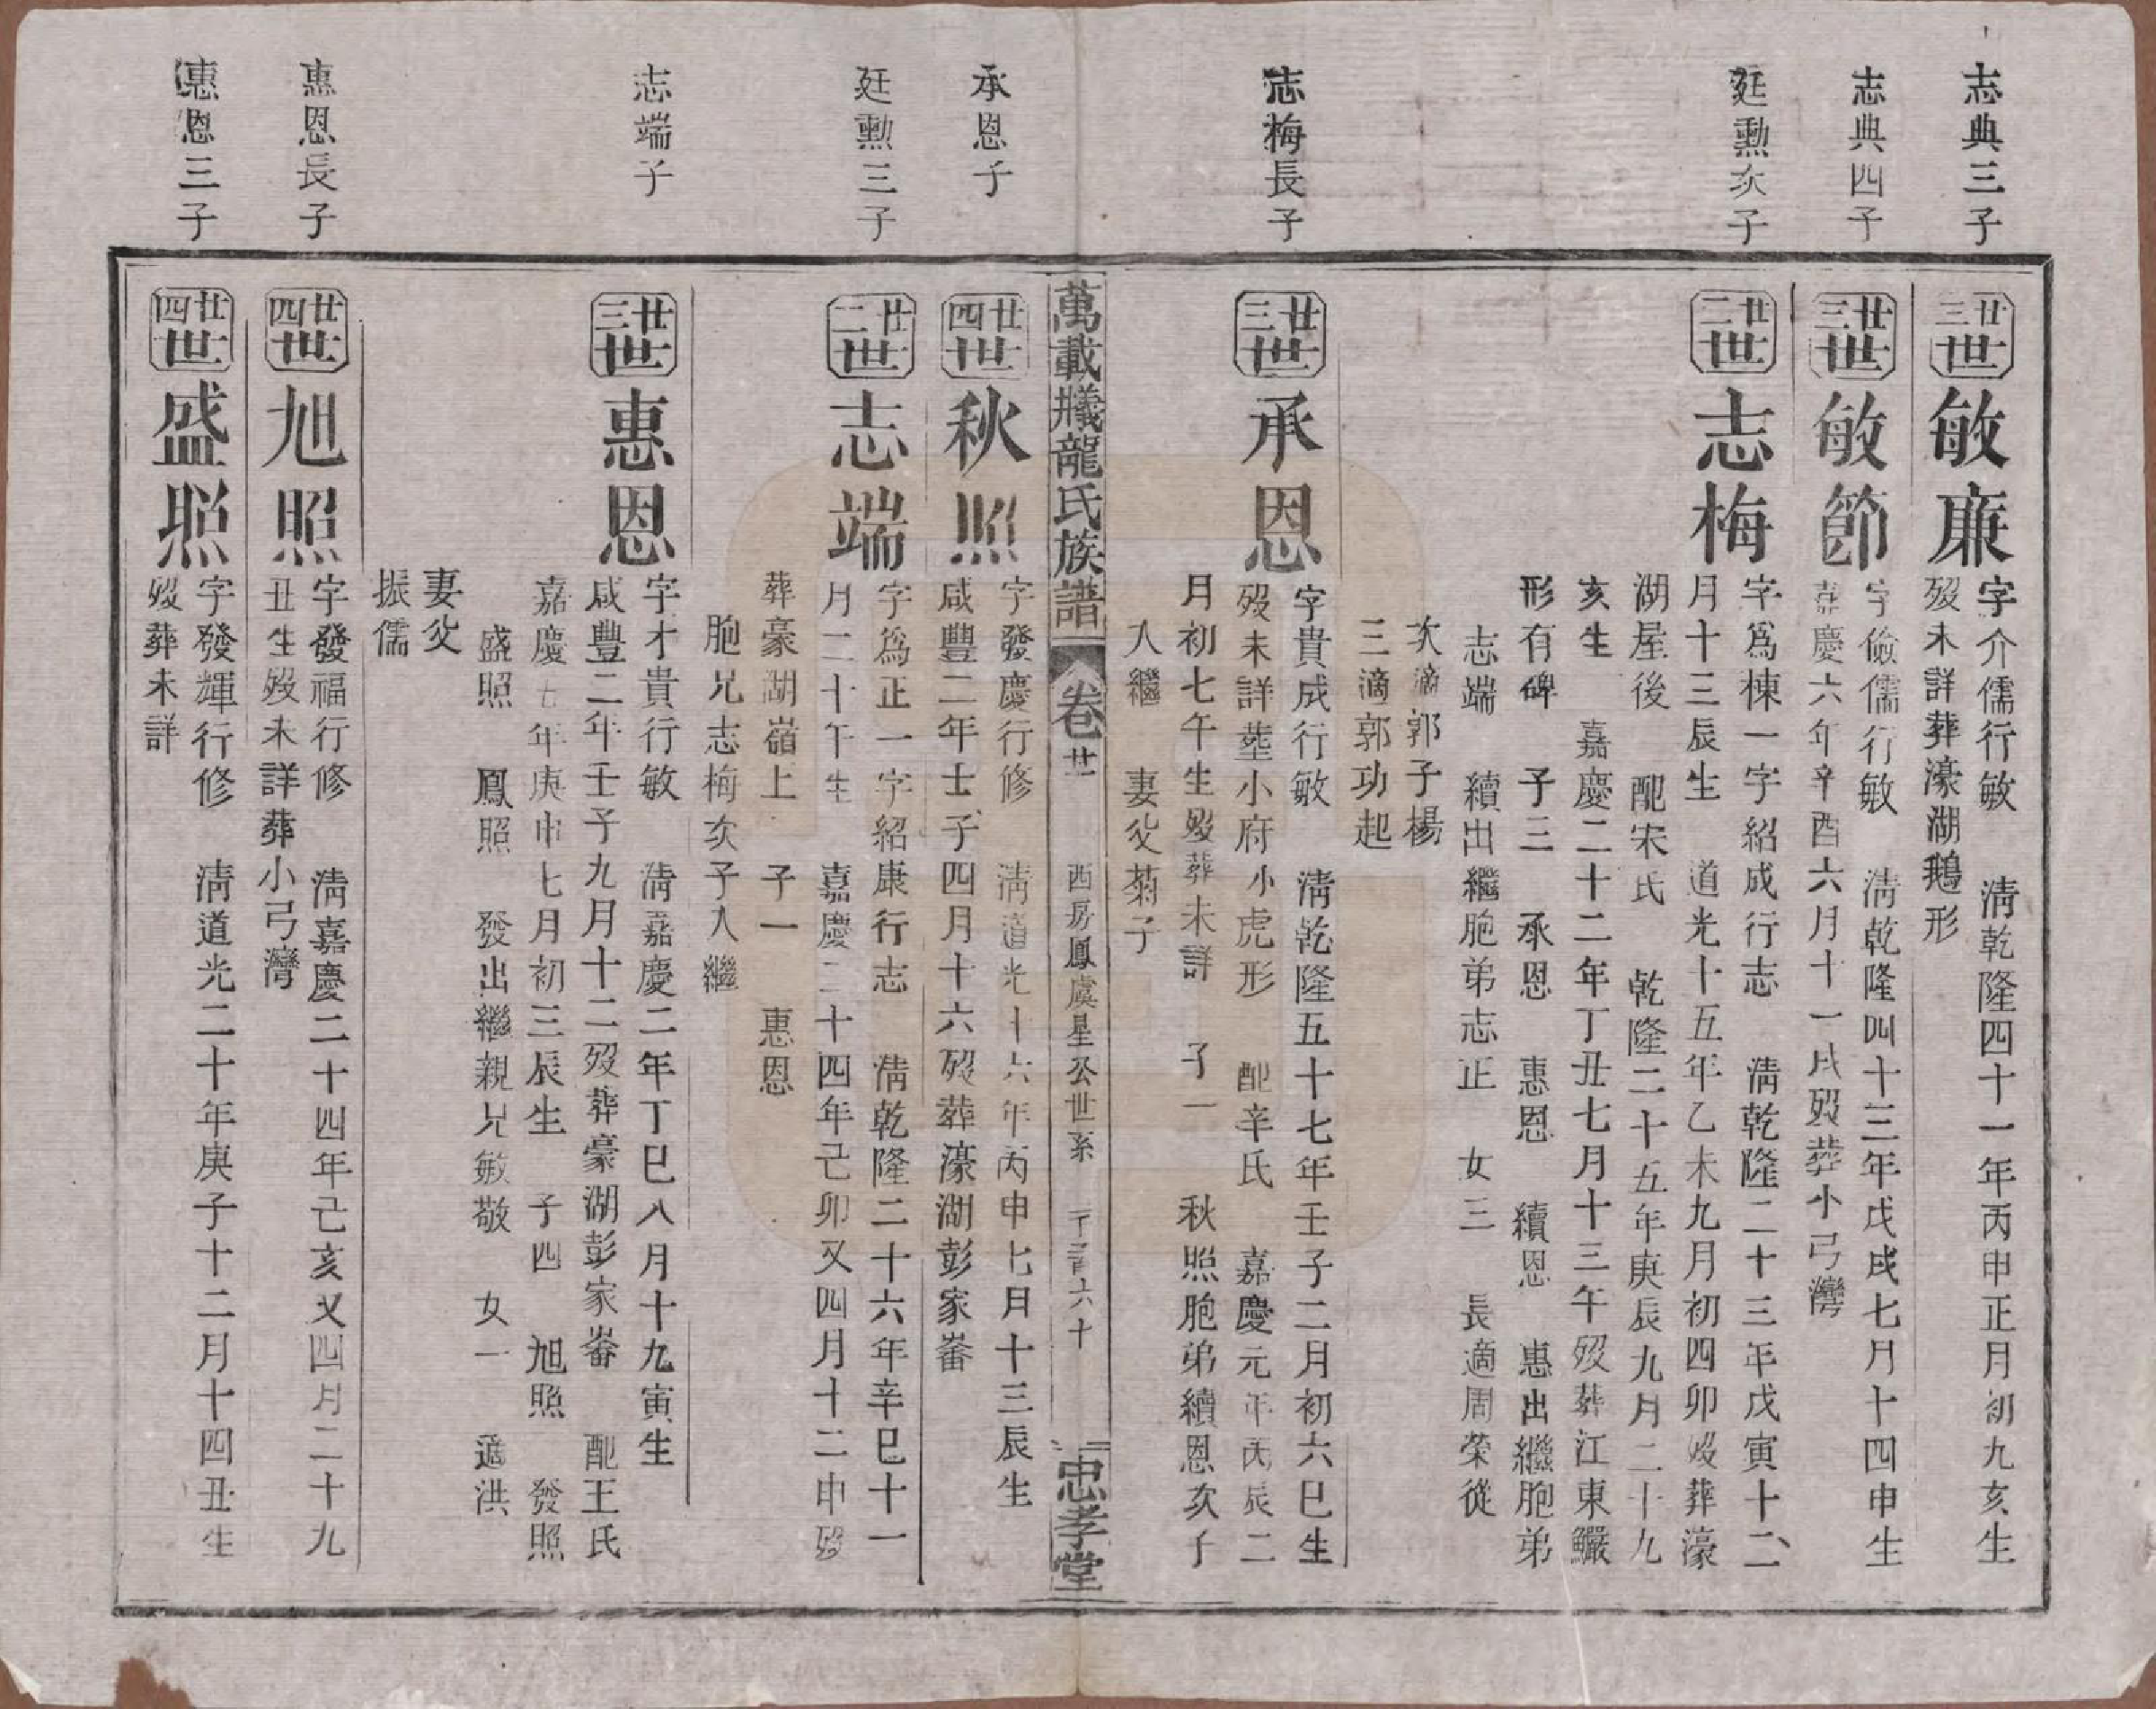 志典三子
廿三世
敏廉
字介儒行敏 淸乾隆四十一年丙申正月初九亥生
歿未詳葬濠湖鵝形
志典四子
廿三世
敏節
字儉儒行敏 淸乾隆四十三年戊戌七月十四申生
嘉慶六年辛酉六月十一戌歿葬小弓灣
廷勳次子
廿二世
志梅
字爲棟一字紹成行志 淸乾隆二十三年戊寅十二
月十三辰生 道光十五年乙未九月初四卯歿葬濠
湖屋後 配宋氏 乾隆二十五年庚辰九月二十九
亥生 嘉慶二十二年丁丑七月十三午歿葬江東鱖
形有碑 子三 承恩 惠恩 續恩 惠出繼胞弟
志端 續出繼胞弟志正 女三 長適周榮從
次適郭子楊
三適郭功起
志梅長子
廿三世
承恩
字貴成行敏 淸乾隆五十七年壬子二月初六巳生
歿未詳塟小府小虎形 配辛氏 嘉慶元年丙辰二
月初七午生歿葬未詳 子一 秋照胞弟續恩次子
入繼 妻父菊子
萬載㸢龍氏族譜 卷廿 西房鳳虞星公世系 忠孝堂
承恩子
廿四世
秋照
字發慶行修 淸道光十六年丙申七月十三辰生
咸豐二年壬子四月十六歿葬濠湖彭家𡺸
廷勳三子
廿二世
志端
字爲正一字紹康行志 淸乾隆二十六年辛巳十一
月二十午生 嘉慶二十四年己卯又四月十二申歿
葬豪湖嶺上 子一 惠恩
胞兄志梅次子入繼
志端子
廿三世
惠恩
字才貴行敏 淸嘉慶二年丁巳八月十九寅生
咸豐二年壬子九月十二歿葬豪湖彭家𡺸 配王氏
嘉慶七年庚申七月初三辰生 子四 旭照 發照
盛照 鳳照 發出繼親兄敏敬 女一 適洪
妻父
振儒
惠恩長子
廿四世
旭照
字發福行修 淸嘉慶二十四年己亥又四月二十九
丑生歿未詳葬小弓灣
惠恩三子
廿四世
盛照
字發輝行修 淸道光二十年庚子十二月十四丑生
歿葬未詳